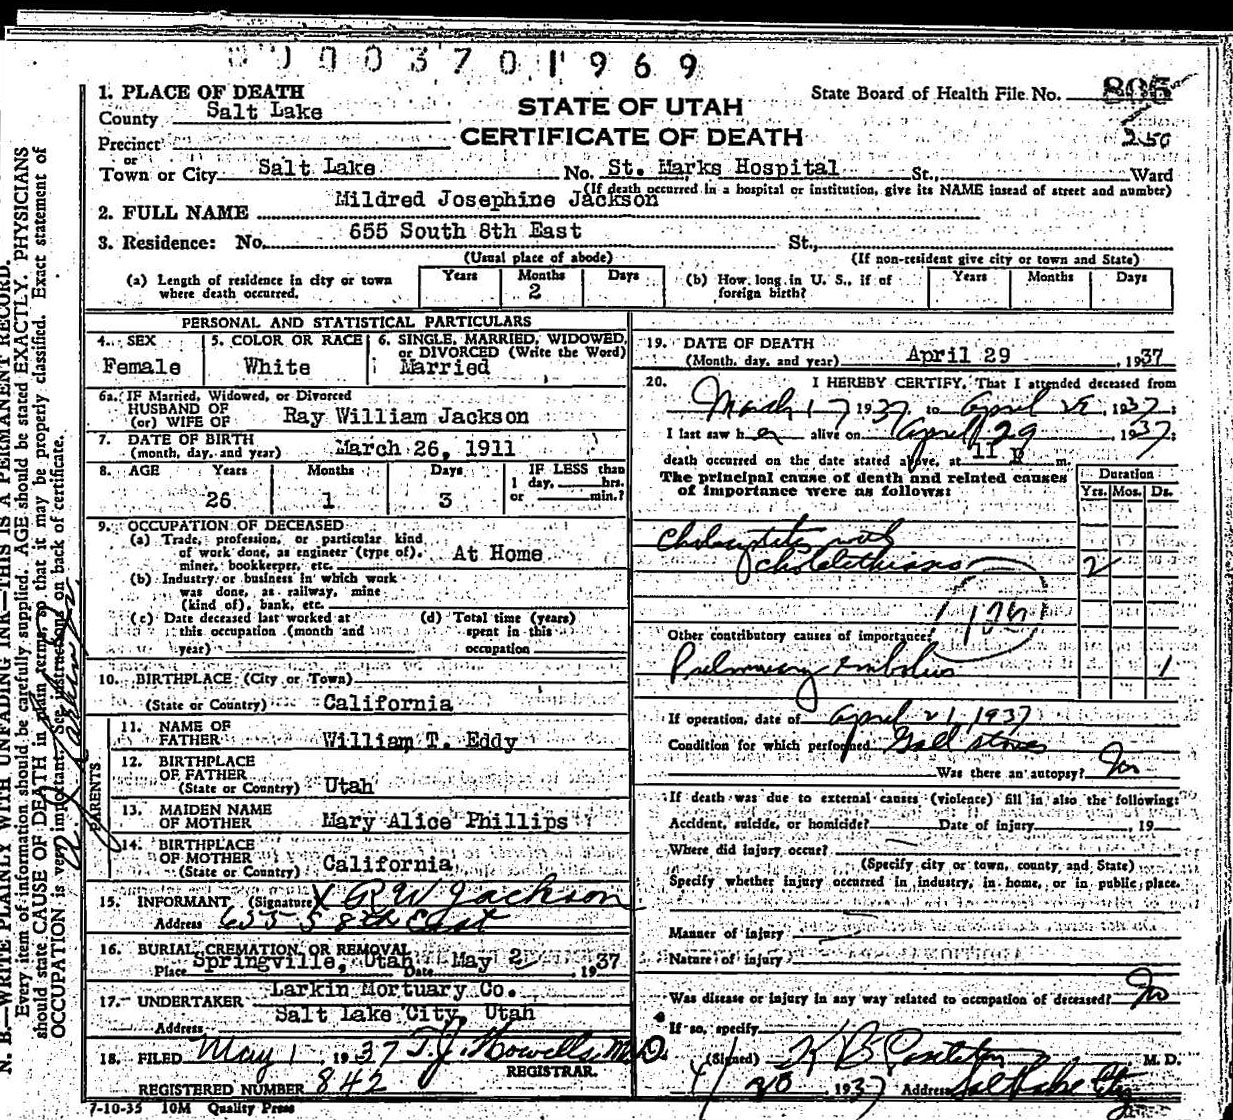 0003701969
1. PLACE OF DEATH
County Salt Lake
STATE OF UTAH
CERTIFICATE OF DEATH
State Board of Health File No. 805
250
Precinct
or
Town or City Salt Lake No. St. Marks Hospital St., Ward
(If death occurred in a hospital or institution, give its NAME insead of street and number)
2. FULL NAME Mildred Josephine Jackson
3. Residence: No. 655 South 8th East St.,
(Usual place of abode) (If non-resident give city or town and State)
(a) Length of residence in city or town where death occurred. Years Months 2 Days
(b) How long in U. S., if of foreign birth? Years Months Days
PERSONAL AND STATISTICAL PARTICULARS
4. SEX Female
5. COLOR OR RACE White
6. SINGLE, MARRIED, WIDOWED, or DIVORCED (Write the Word) Married
6a. IF Married, Widowed, or Divorced
HUSBAND OF
(or) WIFE OF Ray William Jackson
7. DATE OF BIRTH
(month, day, and year) March 26, 1911
8. AGE Years Months Days IF LESS than
1 day, hrs.
or min.?
26 1 3
9. OCCUPATION OF DECEASED
(a) Trade, profession, or particular kind
of work done, as engineer (type of),
miner, bookkeeper, etc. At Home
(b) Industry or business in which work
was done, as railway, mine
(kind of), bank, etc.
(c) Date deceased last worked at
this occupation (month and
year)
(d) Total time (years)
spent in this
occupation
10. BIRTHPLACE (City or Town)
(State or Country) California
PARENTS
11. NAME OF
FATHER William T. Eddy
12. BIRTHPLACE
OF FATHER
(State or Country) Utah
13. MAIDEN NAME
OF MOTHER Mary Alice Phillips
14. BIRTHPLACE
OF MOTHER
(State or Country) California
15. INFORMANT (Signature) X R W Jackson
Address 655 S 8th East
16. BURIAL, CREMATION OR REMOVAL
Place Springville, Utah Date May 2, 1937
17. UNDERTAKER Larkin Mortuary Co.
Address Salt Lake City, Utah
18. FILED May 1, 1937 T. J. Howells, M.D.
REGISTRAR.
REGISTERED NUMBER 842
7-10-35 10M Quality Press
19. DATE OF DEATH
(Month, day, and year) April 29, 1937
20. I HEREBY CERTIFY, That I attended deceased from
March 17 1937 to April 29, 1937;
I last saw her alive on April 29, 1937;
death occurred on the date stated above, at 11 P m.
The principal cause of death and related causes
of importance were as follows:
Duration
Yrs. Mos. Ds.
Cholecystitis with
cholelithiasis 2
Other contributory causes of importance:
Pulmonary embolus 1
If operation, date of April 21, 1937
Condition for which performed Gall stones
Was there an autopsy? No
If death was due to external causes (violence) fill in also the following:
Accident, suicide, or homicide? Date of injury , 19
Where did injury occur?
(Specify city or town, county and State)
Specify whether injury occurred in industry, in home, or in public place.
Manner of injury
Nature of injury
Was disease or injury in any way related to occupation of deceased? No
If so, specify
(Signed) M. D.
4/30 1937 Address Salt Lake City
N. B.—WRITE PLAINLY WITH UNFADING INK—THIS IS A PERMANENT RECORD.
Every item of information should be carefully supplied. AGE should be stated EXACTLY. PHYSICIANS
should state CAUSE OF DEATH in plain terms, so that it may be properly classified. Exact statement of
OCCUPATION is very important. See instructions on back of certificate.